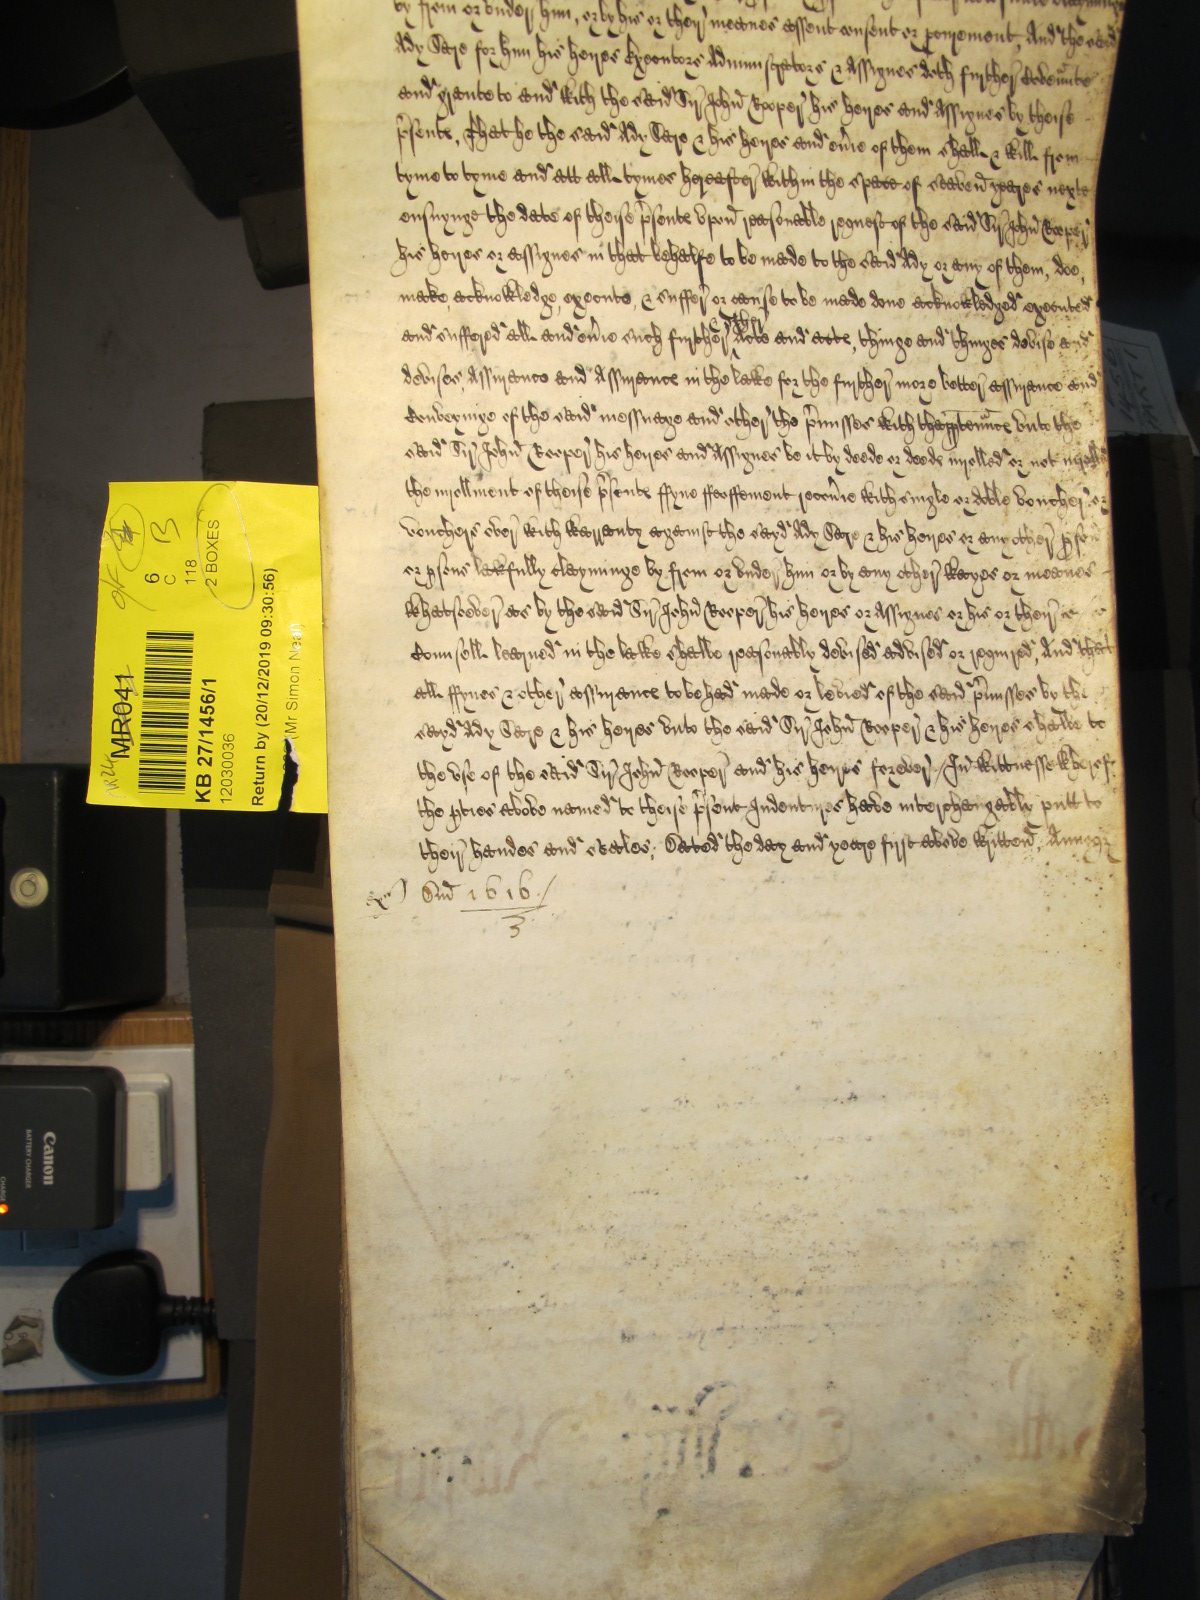 by from or under him, or by his or their meanes assent consent or procurement, And the said
Ady Sare for him his heires Executors Administrators & Assignes doth further Covennte
and graunte to and with the said Sir John Rooper his heires and Assignes by theise
p̱sente, That he the said Ady Sare & his heires and ev̄ie of them shall & will from
tyme to tyme and att all tymes hereafter within the space of seaven yeares nexte
ensuynge the date of theise p̱sente upon reasonable request of the said Sir John Rooper
his heires or assignes in that behalfe to be made to the said Ady or any of them, doe,
make, acknowledge, execute, & suffer or cause to be made done acknowledged executed
and suffered all and ev̄ie such further & other Acte and acte, thinge and thinges devise and
devises, Assurance and Assurance in the lawe for the further more better assurance and
Conveyinge of the said messuage and other the p̱misses with thapptennce unto the
said Sir John Rooper his heires and Assignes be it by deede or deede inrolled or not inrolled
the inrollment of theise p̱sente ffyne ffeoffement recov̄ie with single or doble voucher or
vouchers over with warranty against the sayd Ady Sare & his heires or any other p̱son
or p̱sons lawfully clayminge by from or under him or by any other wayes or meanes
whatsoever as by the said Sir John Rooper his heires or Assignes or his or their
Counsell learned in the lawe shalbe reasonably devised advised or required, And that
all ffynes & other assurance to be had made or levied of the said p̱misses by the
sayd Ady Sare & his heires unto the said Sir John Rooper & his heires shalbe to
the use of the said Sir John Rooper and his heires forever / In wittnesse whereof
the p̱ties above named to theise p̱sent Indentures have interchangably putt to
their handes and seales; Dated the day and yeare first above written. Annoq̱
Dnī 1616 /
3
MR041
of
6
B
C
118
2 BOXES
KB 27/1456/1
12030036
Return by (20/12/2019 09:30:56)
(Mr Simon Neal)
Canon
BATTERY CHARGER
CHARGE
PART 1